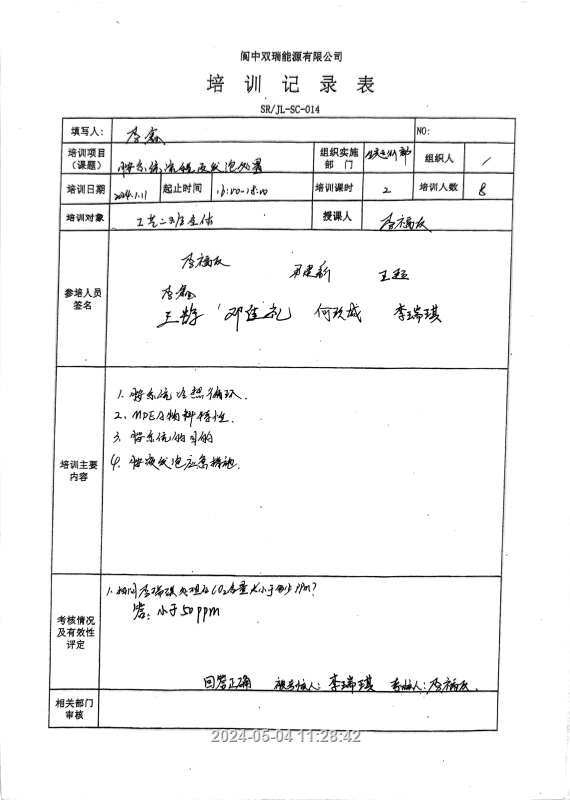 阆中双瑞能源有限公司
培训记录表
SR/JL-SC-014
填写人: 李鑫 NO:
培训项目(课题) 胺系统流程及发泡处置 组织实施部门 生产技术部 组织人 /
培训日期 2024.1.11 起止时间 16:00-18:00 培训课时 2 培训人数 8
培训对象 工艺二班全体 授课人 李福友
参培人员签名
李福友 王超
李鑫
何玖城 李瑞琪
培训主要内容
1. 胺系统冷热循环.
2. MDEA物料特性.
3. 胺系统的目的
4. 胺液发泡应急措施.
考核情况及有效性评定
1. 提问李瑞琪处理后CO2含量应小于多少ppm?
答: 小于50ppm
回答正确 被考核人: 李瑞琪 考核人: 李福友.
相关部门审核
2024-05-04 11:28:42